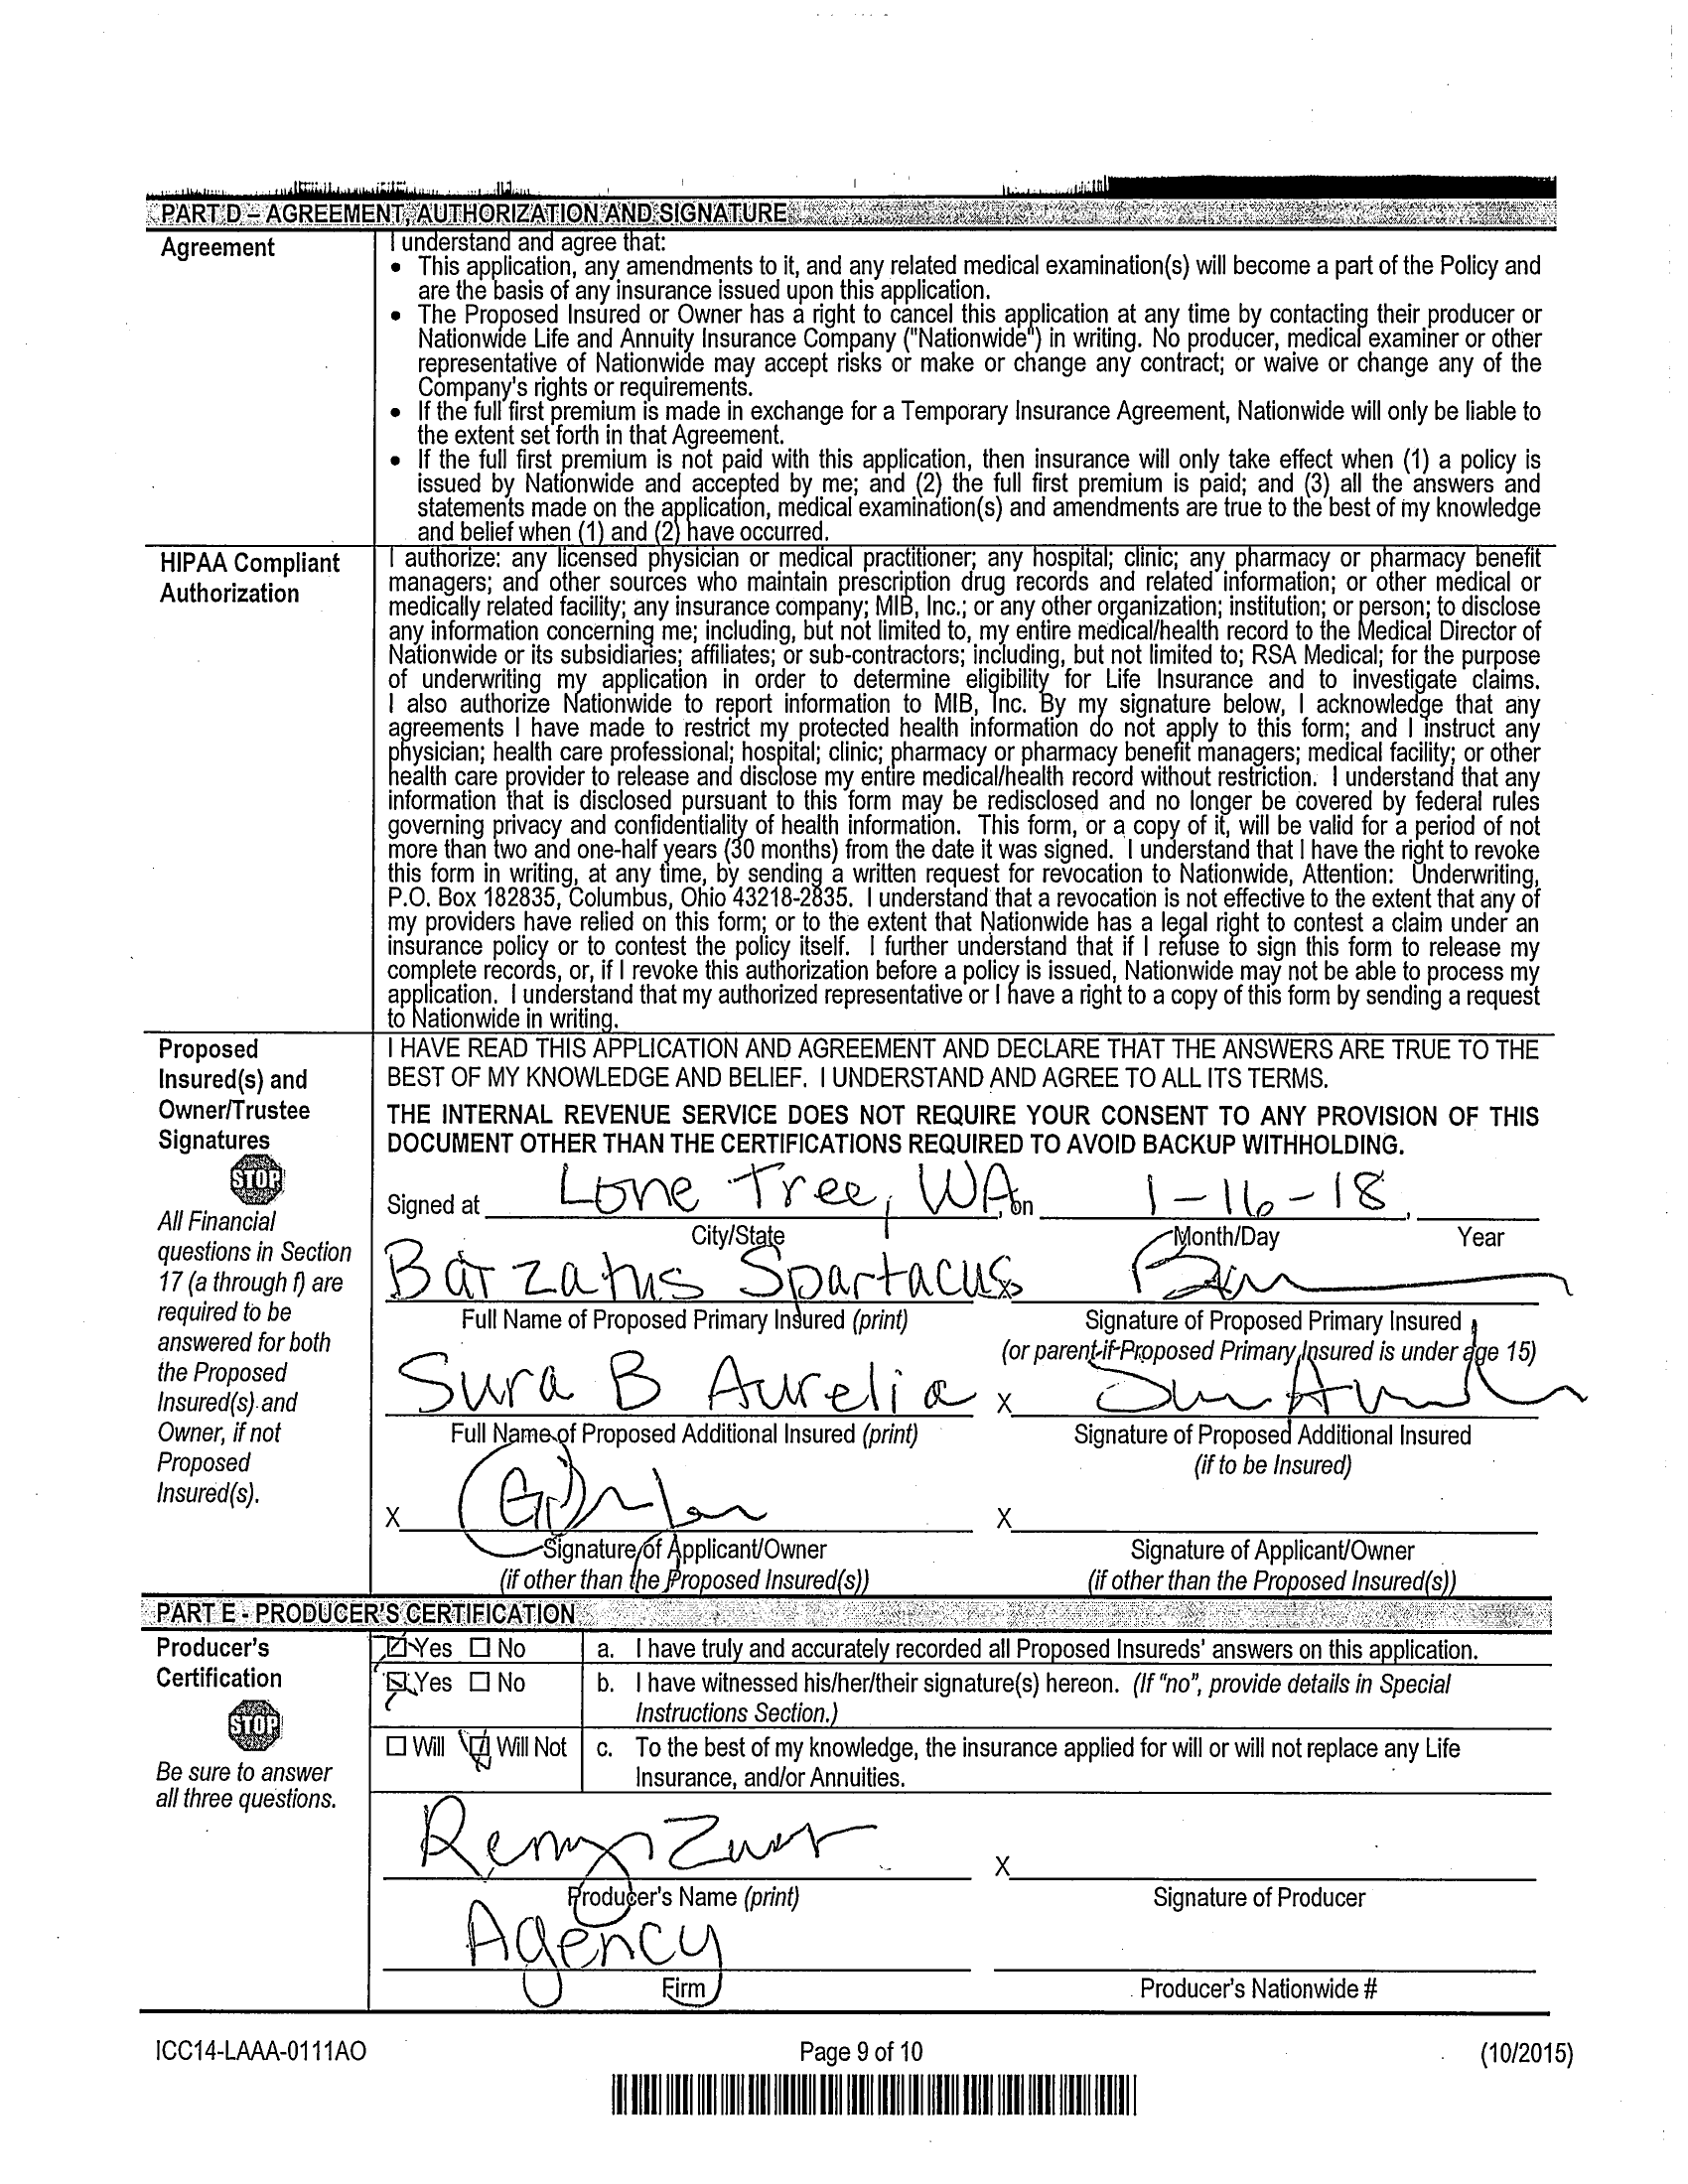 PART D – AGREEMENT, AUTHORIZATION AND SIGNATURE
Agreement
I understand and agree that:
• This application, any amendments to it, and any related medical examination(s) will become a part of the Policy and
are the basis of any insurance issued upon this application.
• The Proposed Insured or Owner has a right to cancel this application at any time by contacting their producer or
Nationwide Life and Annuity Insurance Company ("Nationwide") in writing. No producer, medical examiner or other
representative of Nationwide may accept risks or make or change any contract; or waive or change any of the
Company's rights or requirements.
• If the full first premium is made in exchange for a Temporary Insurance Agreement, Nationwide will only be liable to
the extent set forth in that Agreement.
• If the full first premium is not paid with this application, then insurance will only take effect when (1) a policy is
issued by Nationwide and accepted by me; and (2) the full first premium is paid; and (3) all the answers and
statements made on the application, medical examination(s) and amendments are true to the best of my knowledge
and belief when (1) and (2) have occurred.
HIPAA Compliant
Authorization
I authorize: any licensed physician or medical practitioner; any hospital; clinic; any pharmacy or pharmacy benefit
managers; and other sources who maintain prescription drug records and related information; or other medical or
medically related facility; any insurance company; MIB, Inc.; or any other organization; institution; or person; to disclose
any information concerning me; including, but not limited to, my entire medical/health record to the Medical Director of
Nationwide or its subsidiaries; affiliates; or sub-contractors; including, but not limited to; RSA Medical; for the purpose
of underwriting my application in order to determine eligibility for Life Insurance and to investigate claims.
I also authorize Nationwide to report information to MIB, Inc. By my signature below, I acknowledge that any
agreements I have made to restrict my protected health information do not apply to this form; and I instruct any
physician; health care professional; hospital; clinic; pharmacy or pharmacy benefit managers; medical facility; or other
health care provider to release and disclose my entire medical/health record without restriction. I understand that any
information that is disclosed pursuant to this form may be redisclosed and no longer be covered by federal rules
governing privacy and confidentiality of health information. This form, or a copy of it, will be valid for a period of not
more than two and one-half years (30 months) from the date it was signed. I understand that I have the right to revoke
this form in writing, at any time, by sending a written request for revocation to Nationwide, Attention: Underwriting,
P.O. Box 182835, Columbus, Ohio 43218-2835. I understand that a revocation is not effective to the extent that any of
my providers have relied on this form; or to the extent that Nationwide has a legal right to contest a claim under an
insurance policy or to contest the policy itself. I further understand that if I refuse to sign this form to release my
complete records, or, if I revoke this authorization before a policy is issued, Nationwide may not be able to process my
application. I understand that my authorized representative or I have a right to a copy of this form by sending a request
to Nationwide in writing.
Proposed
Insured(s) and
Owner/Trustee
Signatures
STOP
All Financial
questions in Section
17 (a through f) are
required to be
answered for both
the Proposed
Insured(s) and
Owner, if not
Proposed
Insured(s).
I HAVE READ THIS APPLICATION AND AGREEMENT AND DECLARE THAT THE ANSWERS ARE TRUE TO THE
BEST OF MY KNOWLEDGE AND BELIEF. I UNDERSTAND AND AGREE TO ALL ITS TERMS.
THE INTERNAL REVENUE SERVICE DOES NOT REQUIRE YOUR CONSENT TO ANY PROVISION OF THIS
DOCUMENT OTHER THAN THE CERTIFICATIONS REQUIRED TO AVOID BACKUP WITHHOLDING.
Signed at Lone Tree, WA, on 1-16-18,
City/State Month/Day Year
Barzatus Spartacus X
Full Name of Proposed Primary Insured (print) Signature of Proposed Primary Insured
(or parent if Proposed Primary Insured is under age 15)
Sura B Aurelia X
Full Name of Proposed Additional Insured (print) Signature of Proposed Additional Insured
(if to be Insured)
X X
Signature of Applicant/Owner Signature of Applicant/Owner
(if other than the Proposed Insured(s)) (if other than the Proposed Insured(s))
PART E - PRODUCER'S CERTIFICATION
Producer's
Certification
STOP
Be sure to answer
all three questions.
Yes No a. I have truly and accurately recorded all Proposed Insureds' answers on this application.
Yes No b. I have witnessed his/her/their signature(s) hereon. (If "no", provide details in Special
Instructions Section.)
Will Will Not c. To the best of my knowledge, the insurance applied for will or will not replace any Life
Insurance, and/or Annuities.
X
Producer's Name (print) Signature of Producer
Agency
Firm Producer's Nationwide #
ICC14-LAAA-0111AO Page 9 of 10 (10/2015)